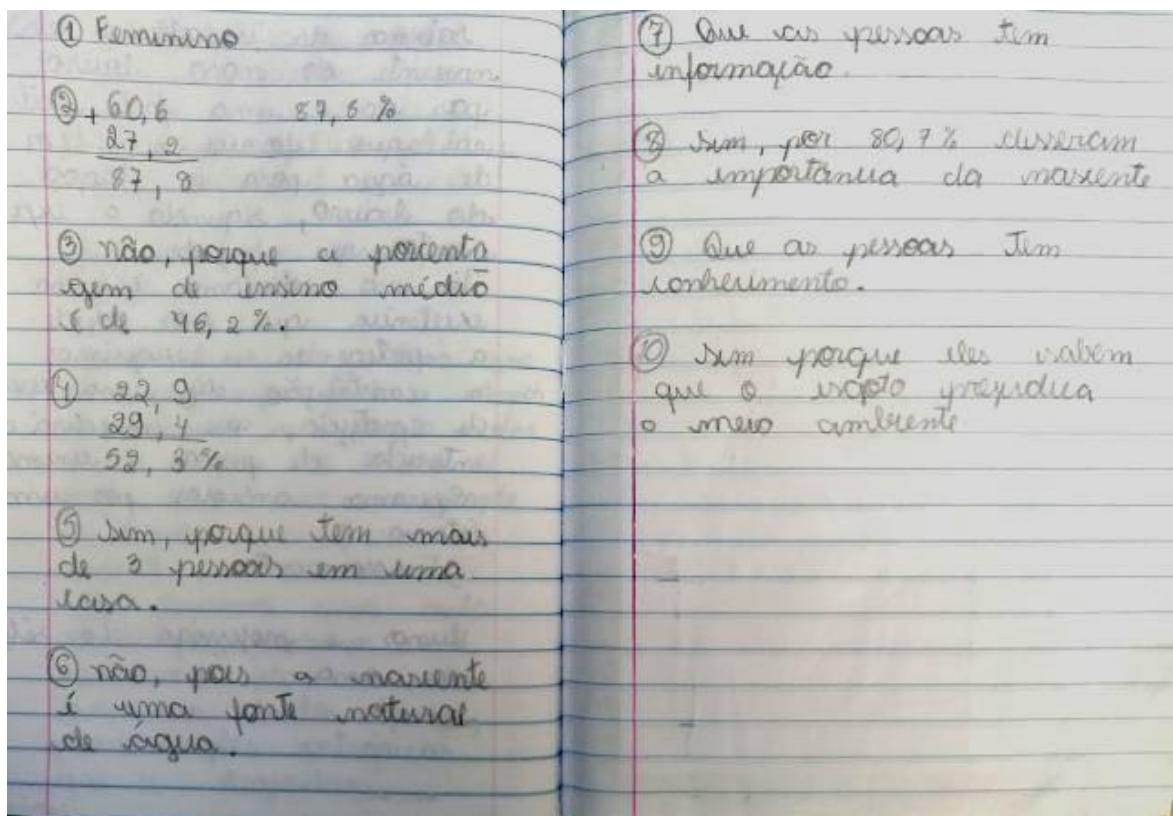 ① Feminino
② + 60,6 87,8 %
27,2
87,8
③ não, porque a porcenta
gem de ensino médio
é de 46,2 %.
④ 22,9
29,4
52,3 %
⑤ sim, porque tem mais
de 3 pessoas em uma
casa.
⑥ não, pois a nascente
é uma fonte natural
de água.
⑦ Que as pessoas tem
informação.
⑧ sim, por 80,7 % disseram
a importância da nascente
⑨ Que as pessoas tem
conhecimento.
⑩ sim porque eles sabem
que o esgoto prejudica
o meio ambiente